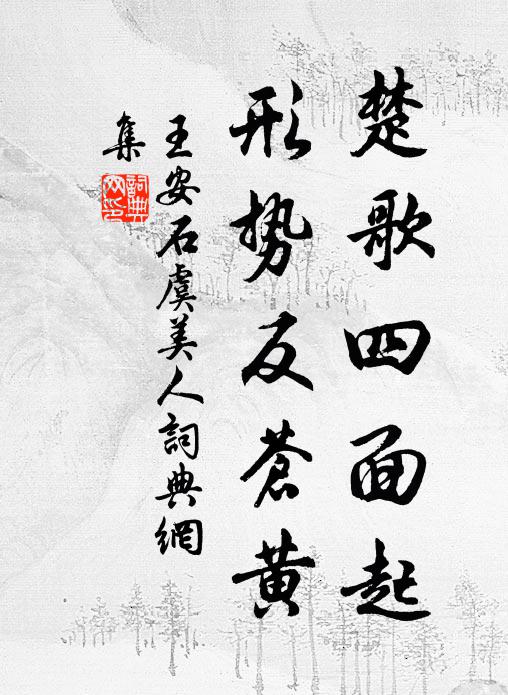 楚歌四面起
形势反蒼黄
王安石虞美人詞典網
集
詞典
网印